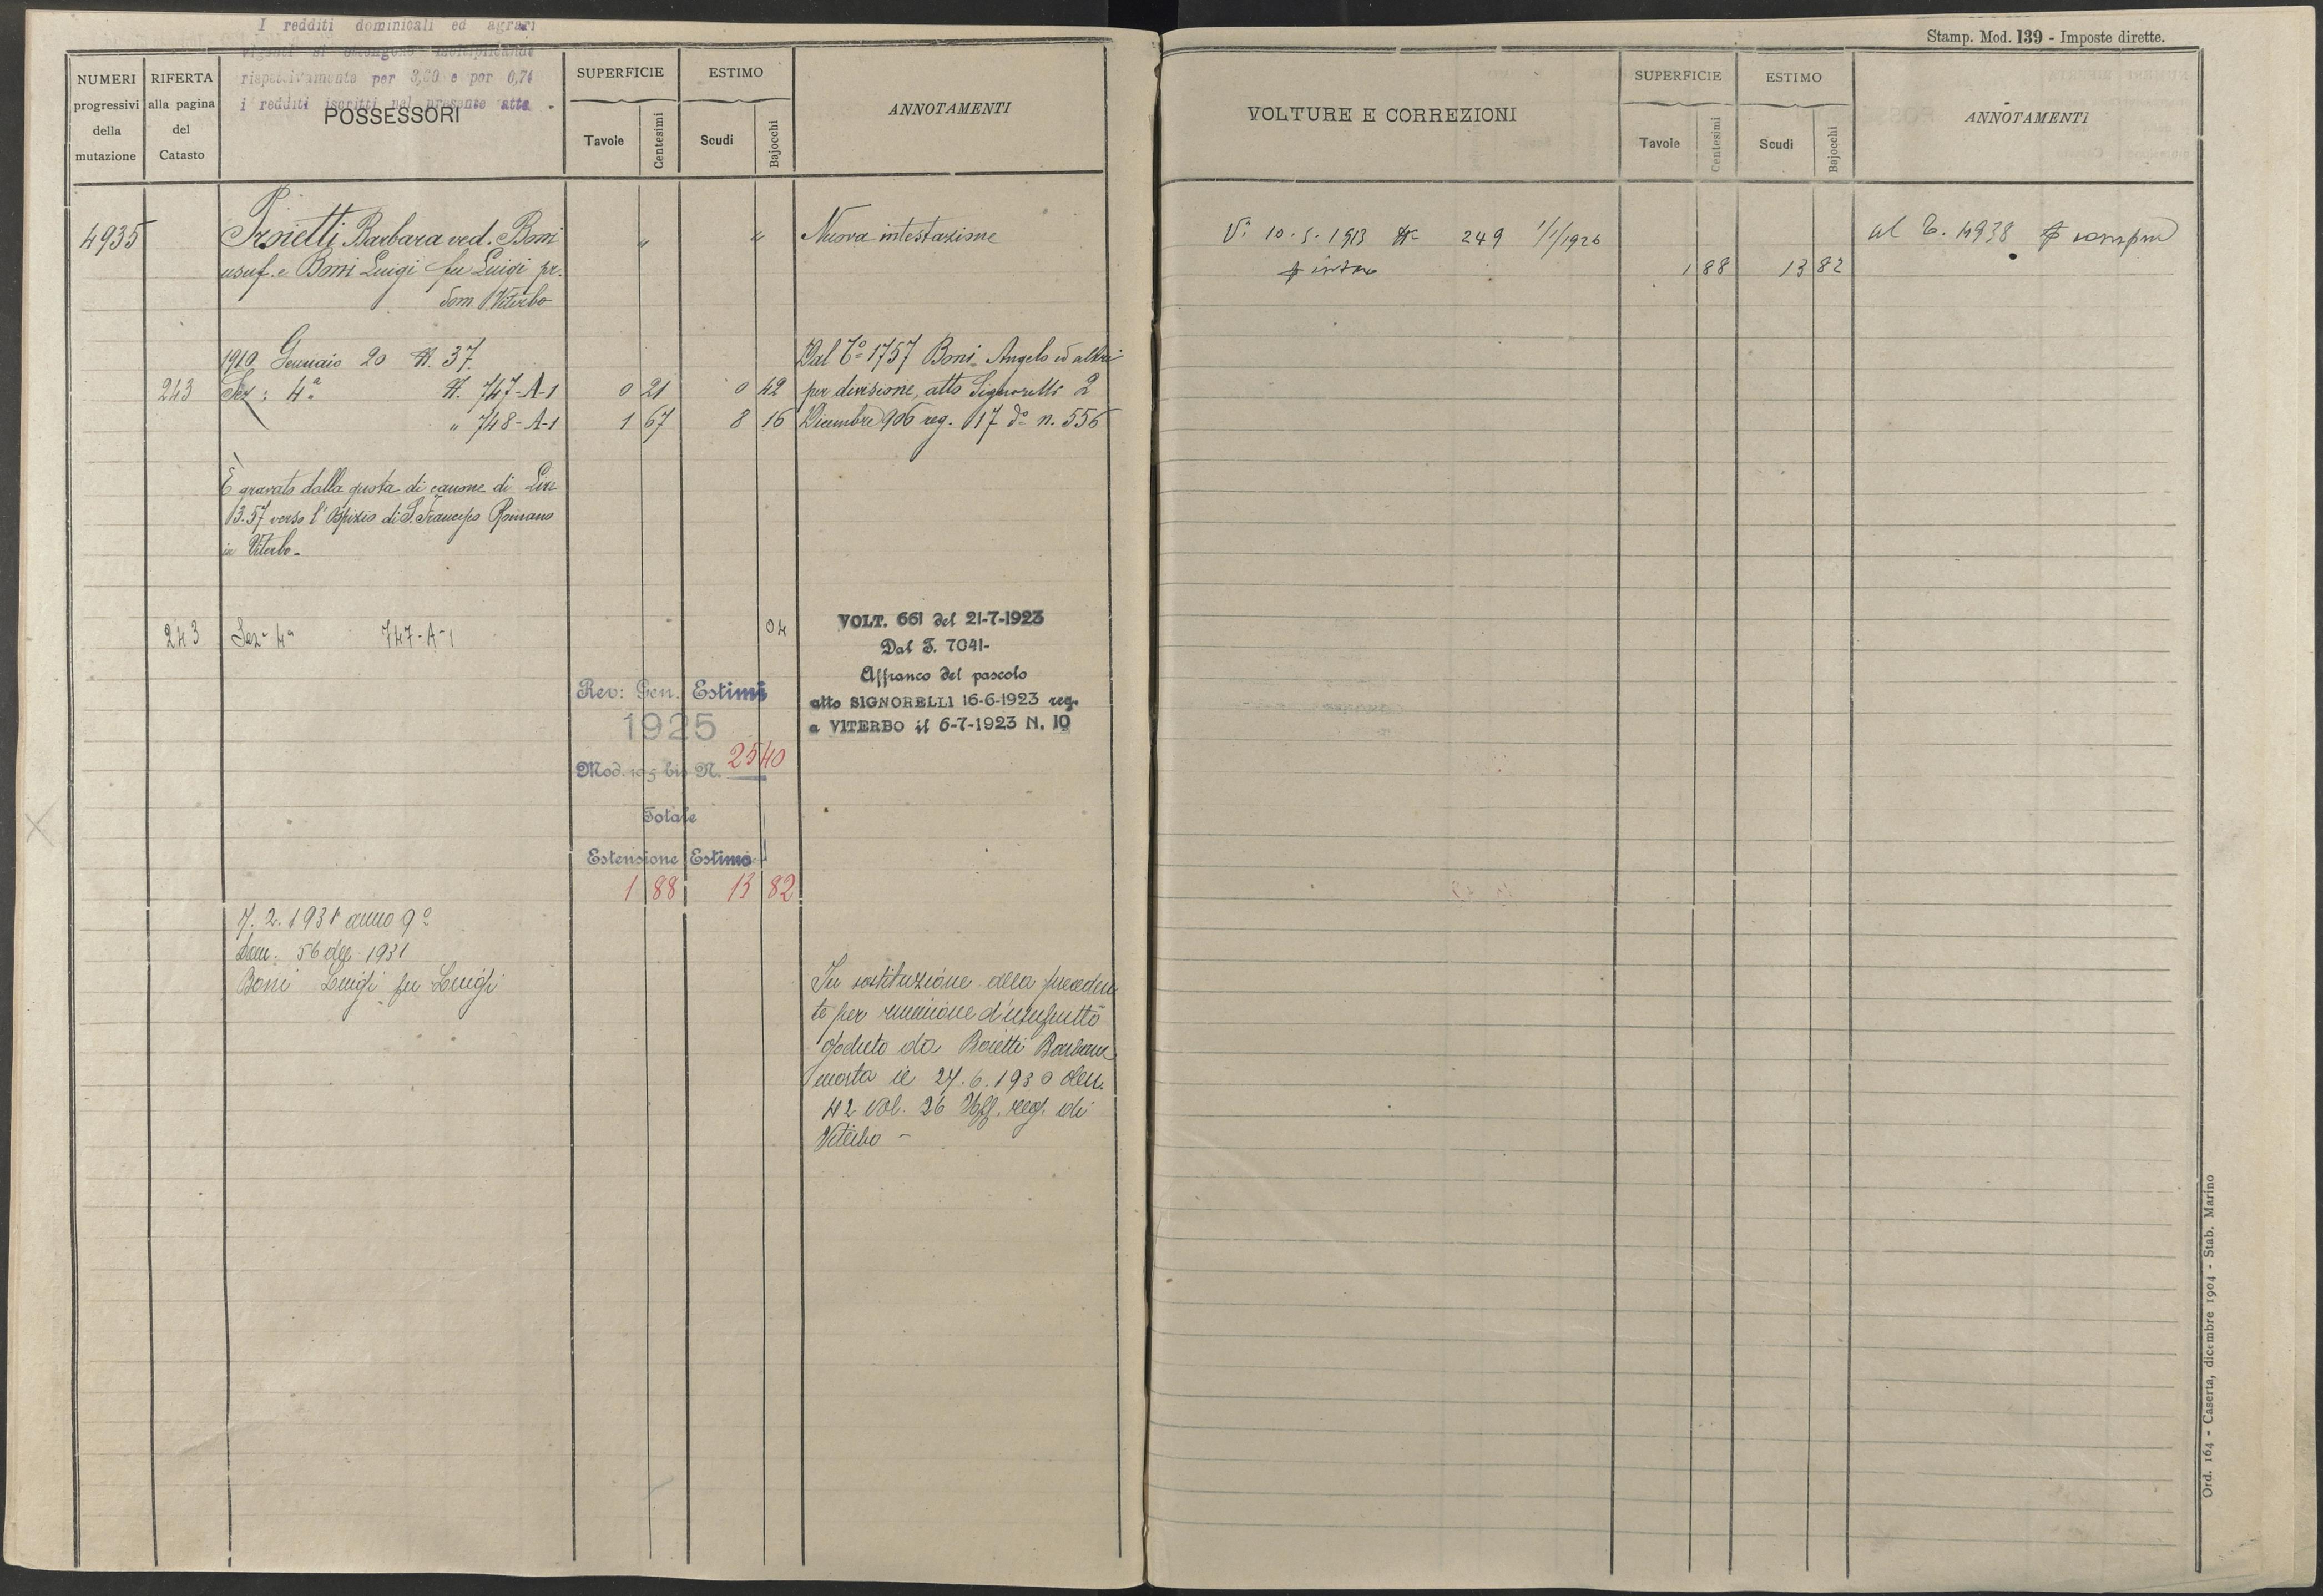 I redditi dominicali ed agrari
vigenti si ottengono moltiplicando
rispettivamente per 3,60 e per 0,74
i redditi iscritti nel presente atto.
NUMERI progressivi della mutazione
RIFERTA alla pagina del Catasto
POSSESSORI
SUPERFICIE
Tavole Centesimi
ESTIMO
Scudi Bajocchi
ANNOTAMENTI
4935 Proietti Barbara ved. Boni " " Nuova intestazione
usuf. e Boni Luigi fu Luigi pr.
dom. Viterbo
1910 Gennaio 20 N. 37. Dal T.o 1757 Boni Angelo ed altri
243 Sez: 4a N. 747-A-1 0 21 0 42 per divisione, atto Signorelli 2
" 748-A-1 1 67 8 16 Dicembre 906 reg. 17 do n. 556
È gravato dalla quota di canone di Lire
13.57 verso l'Ospizio di S. Francesco Romano
in Viterbo-
243 Sez. 4a 747-A-1 04
VOLT. 661 del 21-7-1923
Dal T. 7041-
Affranco del pascolo
atto SIGNORELLI 16-6-1923 reg.
a VITERBO il 6-7-1923 N. 10
Rev: Gen. Estimi
1925
Mod. 105 bis N. 2540
Totale
Estensione Estimo
1 88 13 82
7. 2. 1931 anno 9o
Dom. 56 del 1931
Boni Luigi fu Luigi
In sostituzione alla preceden
te per riunione d'usufrutto
goduto da Proietti Barbara
morta il 27.6.1930 den.
42 vol. 26 Uff. reg. di
Viterbo -
Stamp. Mod. 139 - Imposte dirette.
VOLTURE E CORREZIONI
SUPERFICIE
Tavole Centesimi
ESTIMO
Scudi Bajocchi
ANNOTAMENTI
V. 10.5.1913 N 249 1/1/1926 al T. 4938
1 88 13 82
Ord. 164 - Caserta, dicembre 1904 - Stab. Marino